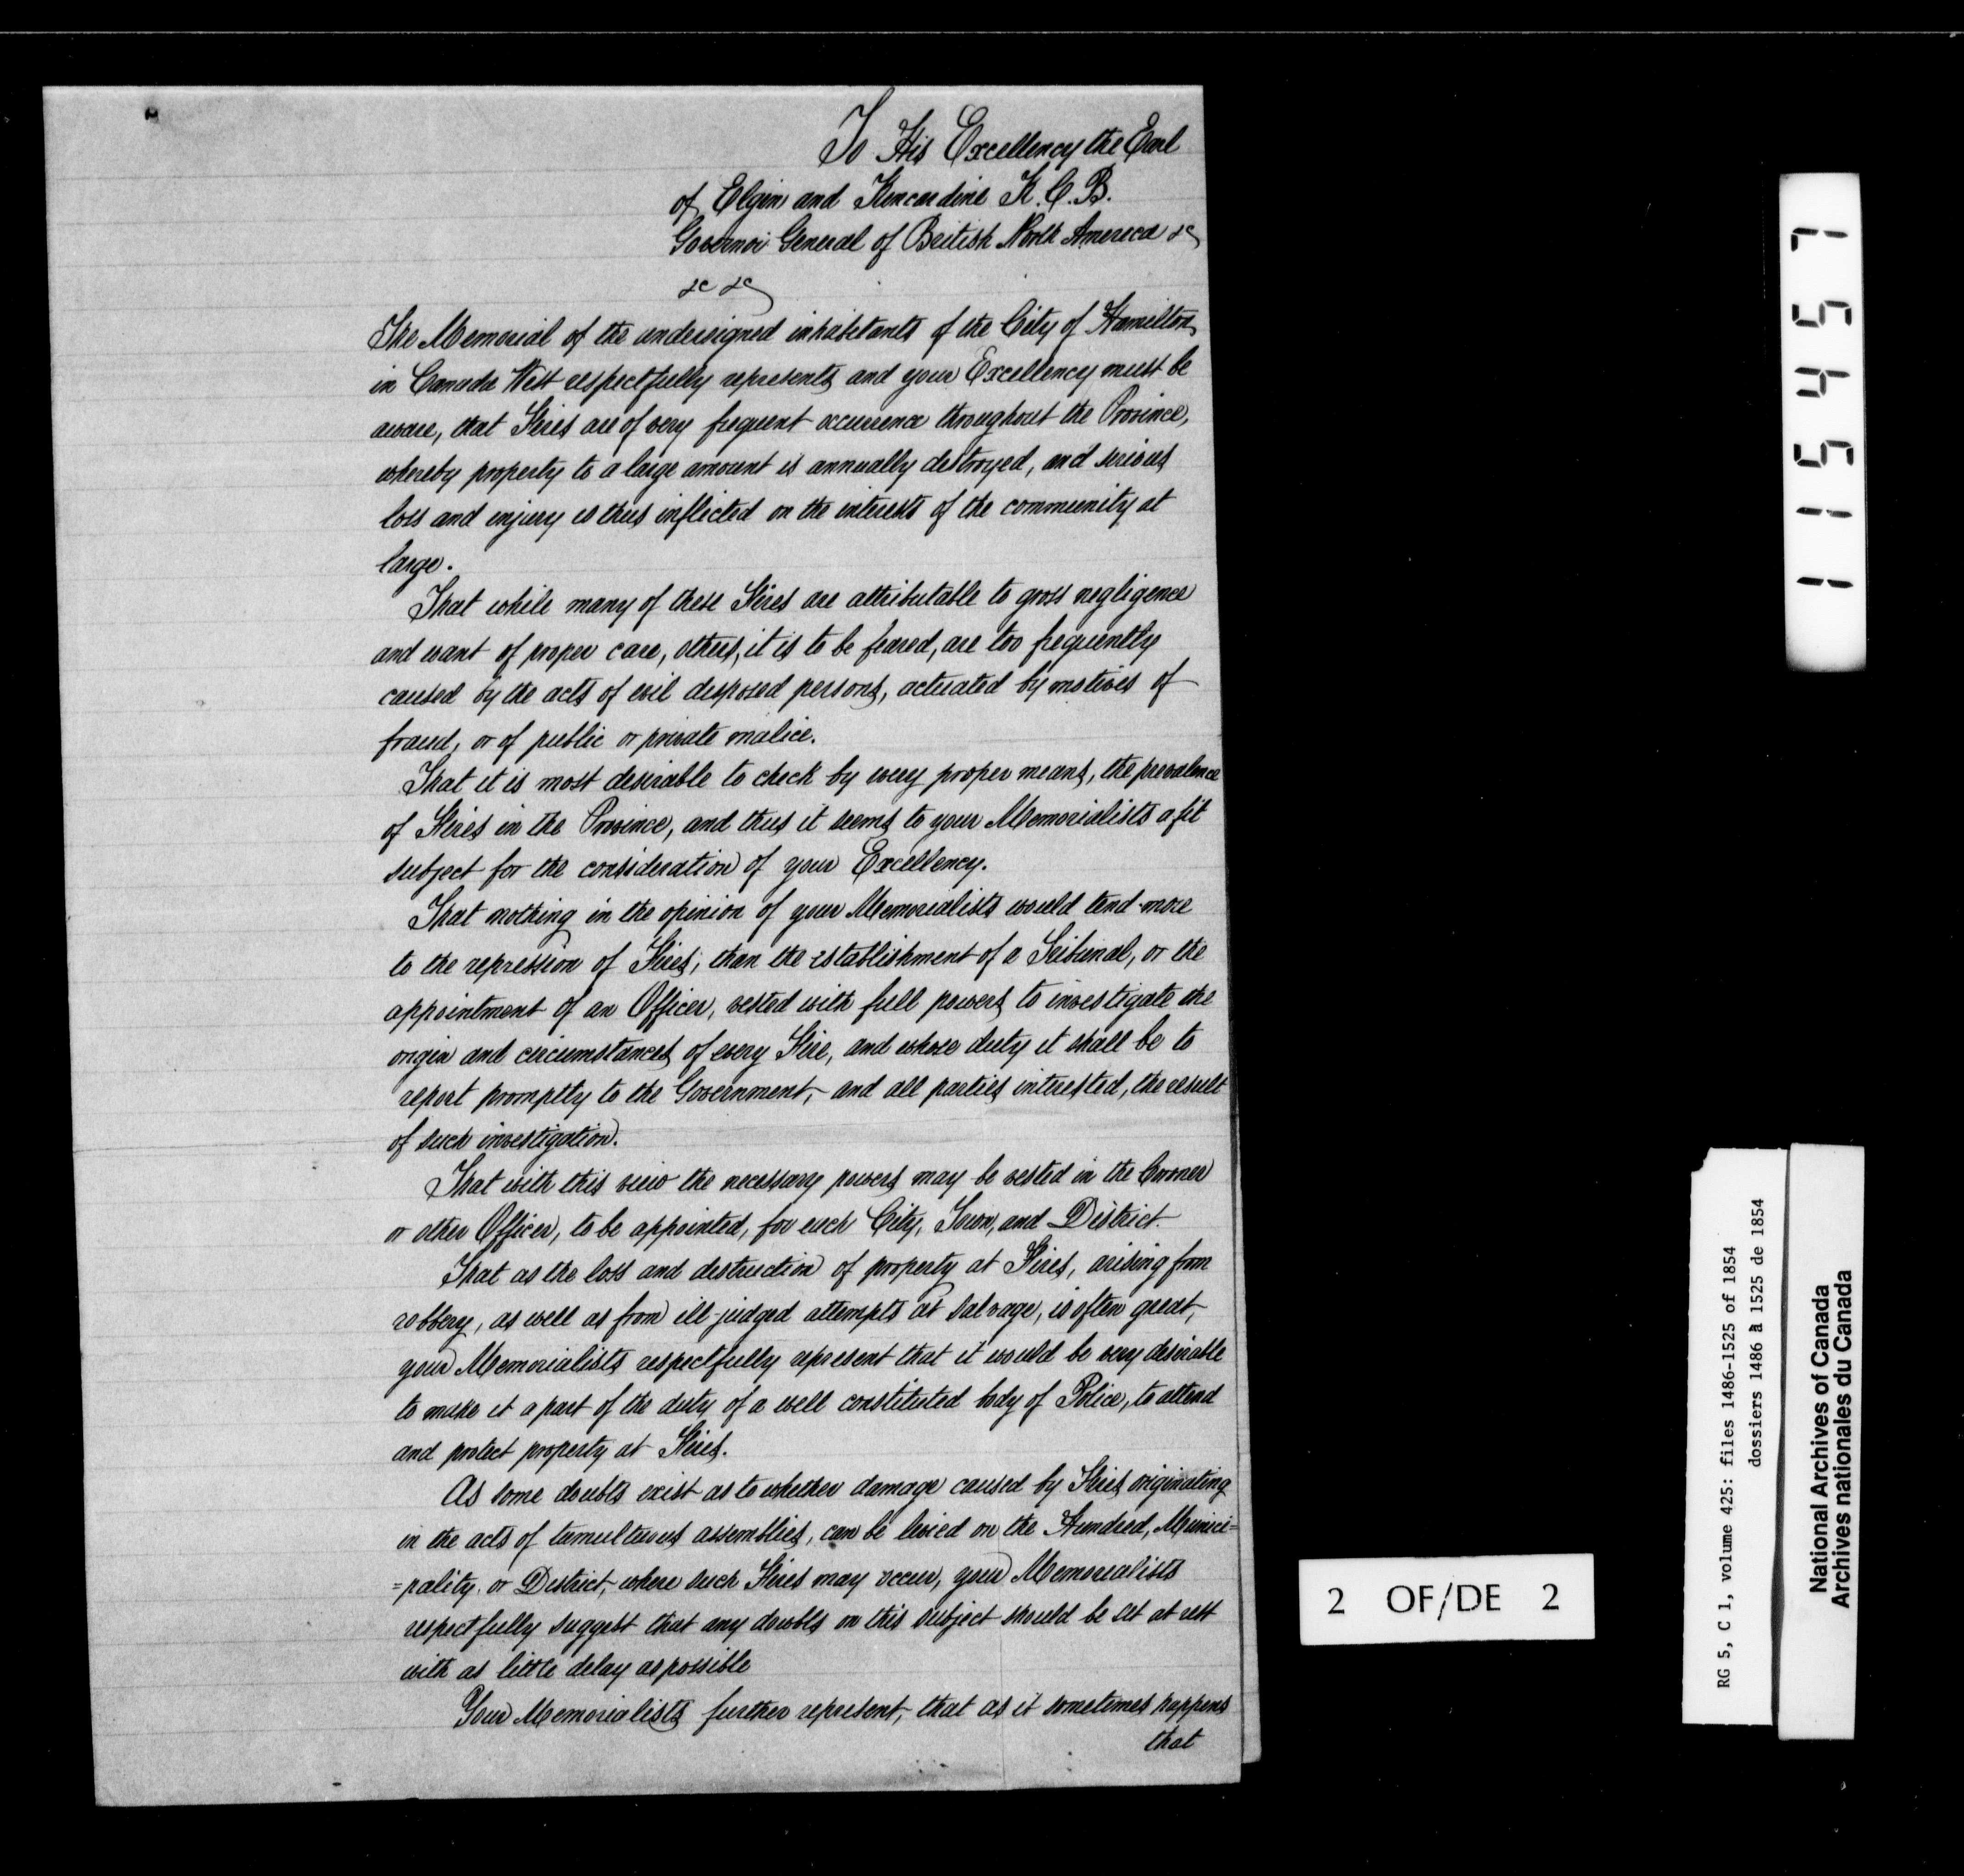 To His Excellency the Earl
of Elgin and Kincardine K.C.B.
Governor General of British North America &c
&c &c
The Memorial of the undersigned inhabitants of the City of Hamilton,
in Canada West respectfully represents, and your Excellency must be
aware, that Fires are of very frequent occurrence throughout the Province,
whereby property to a large amount is annually destroyed, and serious
loss and injury is thus inflicted on the interests of the community at
large.
That while many of these Fires are attributable to gross negligence
and want of proper care, others, it is to be feared, are too frequently
caused by the acts of evil disposed persons, actuated by motives of
fraud, or of public or private malice.
That it is most desirable to check by every proper means, the prevalence
of Fires in the Province, and thus it seems to your Memorialists a fit
subject for the consideration of your Excellency.
That nothing in the opinion of your Memorialists would tend more
to the repression of Fires, than the establishment of a Tribunal, or the
appointment of an Officer, vested with full powers to investigate the
origin and circumstances of every Fire, and whose duty it shall be to
report promptly to the Government, and all parties interested, the result
of such investigation.
That with this view the necessary powers may be vested in the Coroner
or other Officer, to be appointed, for each City, Town, and District
That as the loss and destruction of property at Fires, arising from
robbery, as well as from ill-judged attempts at salvage, is often great,
your Memorialists respectfully represent that it would be very desirable
to make it a part of the duty of a well constituted body of Police, to attend
and protect property at Fires.
As some doubts exist as to whether damage caused by Fires originating
in the acts of tumultuous assemblies, can be levied on the Hundred, Munici=
=pality, or District, where such Fires may occur, your Memorialists
respectfully suggest that any doubts on this subject should be set at rest
with as little delay as possible
Your Memorialists further represent, that as it sometimes happens
that
115457
2 OF/DE 2
RG 5, C 1, volume 425: files 1486-1525 of 1854
dossiers 1486 à 1525 de 1854
National Archives of Canada
Archives nationales du Canada